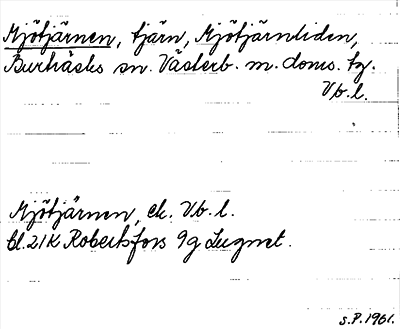 Mjötjärnen, tjärn, Mjötjärnliden,
Burträsks sn. Västerb. m. doms. tg.
Vb. l.
Mjötjärnen, ek. Vb. l.
bl. 21K Robertsfors 9g Lugnet.
S.P. 1961.